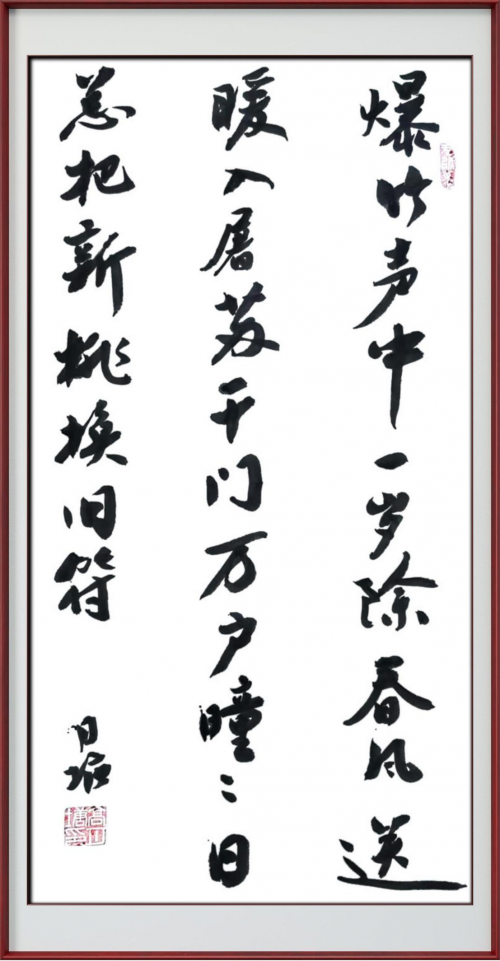 爆竹声中一岁除春风送
暖入屠苏千门万户曈〻日
总把新桃换旧符